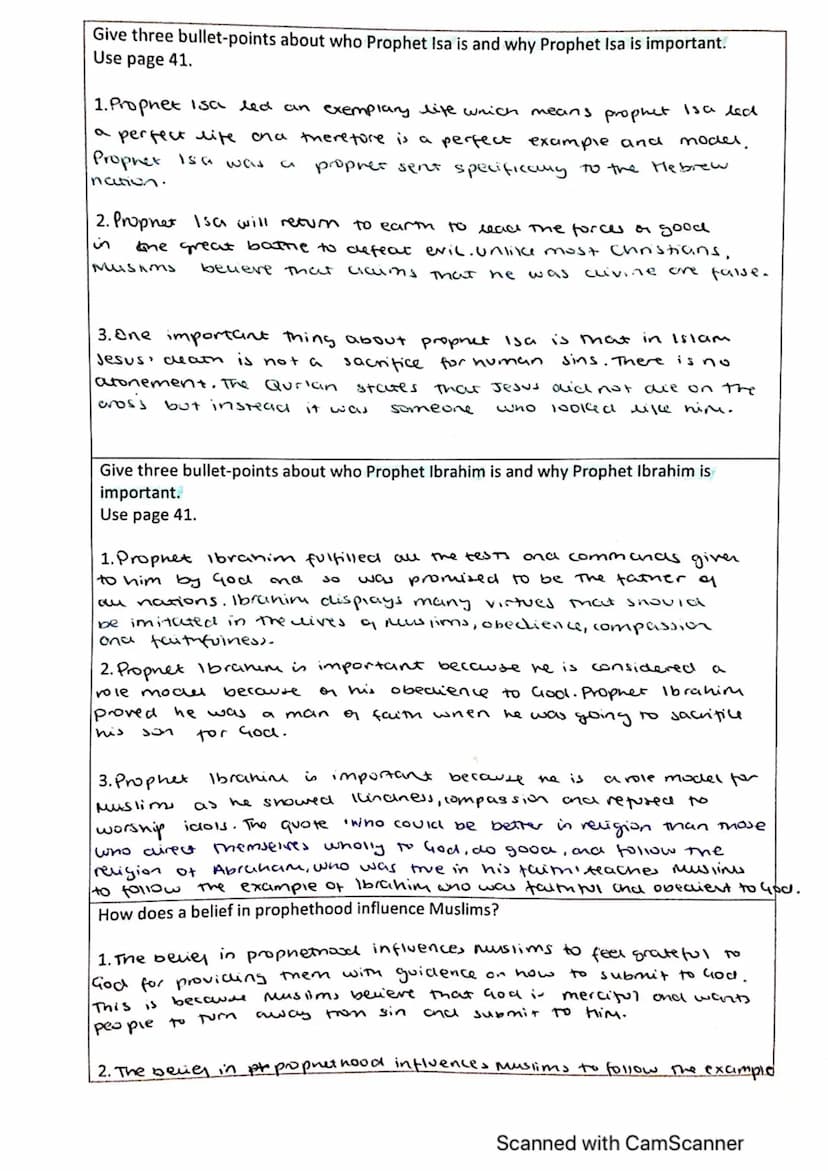 Give three bullet-points about who Prophet Isa is and why Prophet Isa is important.
Use page 41.
1.Prophet Isa led an exemplary life which means prophet Isa led
a perfect life and therefore is a perfect example and model.
Prophet Isa was a prophet sent specifically to the Hebrew
nation.
2. Prophet Isa will return to earth to lead the forces of good
in the great battle to defeat evil. Unlike most Christians,
Muslims believe that claims that he was divine are false.
3. One important thing about prophet Isa is that in Islam
Jesus' death is not a sacrifice for human sins. There is no
atonement. The Qur'an states that Jesus did not die on the
cross but instead it was someone who looked like him.
Give three bullet-points about who Prophet Ibrahim is and why Prophet Ibrahim is
important.
Use page 41.
1. Prophet Ibrahim fulfilled all the tests and commands given
to him by God and so was promised to be the father of
all nations. Ibrahim displays many virtues that should
be imitated in the lives of Muslims, obedience, compassion
and faithfulness.
2. Prophet Ibrahim is important because he is considered a
role model because of his obedience to God. Prophet Ibrahim
proved he was a man of faith when he was going to sacrifice
his son for God.
3. Prophet Ibrahim is important because he is a role model for
Muslims as he showed kindness, compassion and refused to
worship idols. The quote 'who could be better in religion than those
who direct themselves wholly to God, do good, and follow the
religion of Abraham, who was true in his faith' teaches Muslims
to follow the example of Ibrahim who was faithful and obedient to God.
How does a belief in prophethood influence Muslims?
1. The belief in prophethood influences Muslims to feel grateful to
God for providing them with guidence on how to submit to God.
This is because Muslims believe that God is merciful and wants
people to turn away from sin and submit to him.
2. The belief in prophethood influences Muslims to follow the example
Scanned with CamScanner